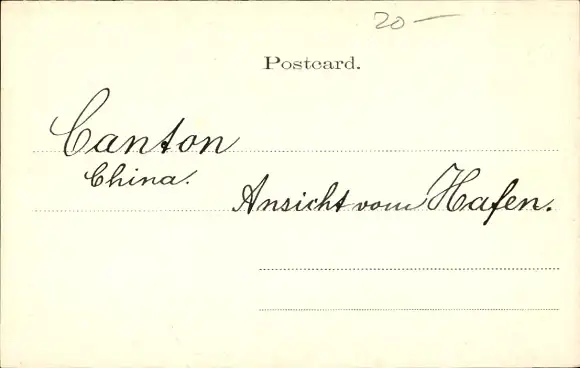 20 —
Postcard.
Canton
China.
Ansicht vom Hafen.